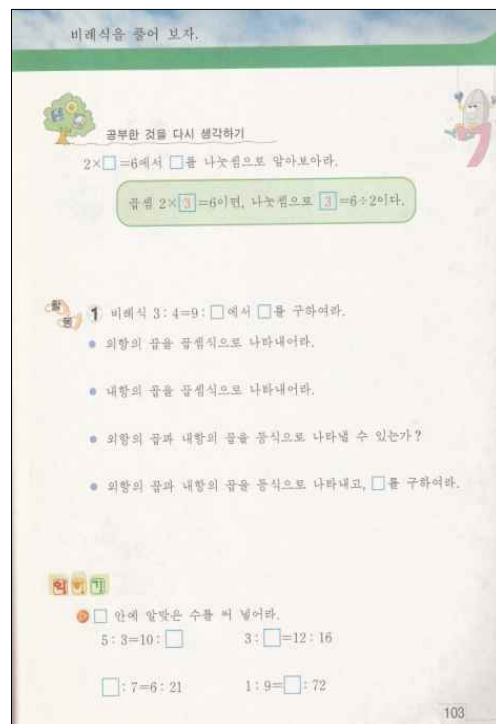 비례식을 풀어 보자.
공부한 것을 다시 생각하기
2×□=6에서 □를 나눗셈으로 알아보아라.
곱셈 2×3=6이면, 나눗셈으로 3=6÷2이다.
활동 1 비례식 3 : 4=9 : □에서 □를 구하여라.
● 외항의 곱을 곱셈식으로 나타내어라.
● 내항의 곱을 곱셈식으로 나타내어라.
● 외항의 곱과 내항의 곱을 등식으로 나타낼 수 있는가?
● 외항의 곱과 내항의 곱을 등식으로 나타내고, □를 구하여라.
익히기
□ 안에 알맞은 수를 써 넣어라.
5 : 3=10 : □ 3 : □=12 : 16
□ : 7=6 : 21 1 : 9=□ : 72
103